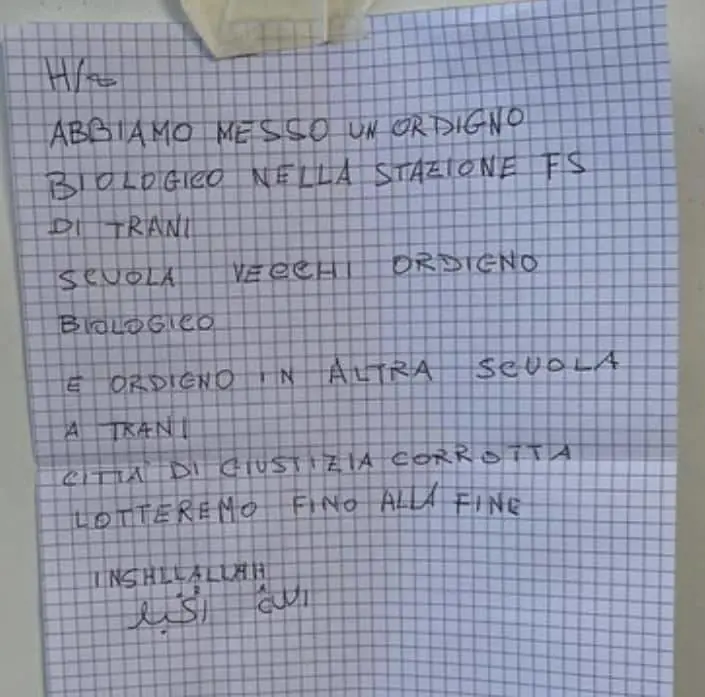 ABBIAMO MESSO UN ORDIGNO
BIOLOGICO NELLA STAZIONE FS
DI TRANI
SCUOLA VECCHI ORDIGNO
BIOLOGICO
E ORDIGNO IN ALTRA SCUOLA
A TRANI
CITTA DI GIUSTIZIA CORROTTA
LOTTEREMO FINO ALLA FINE
INSHLLALLAH